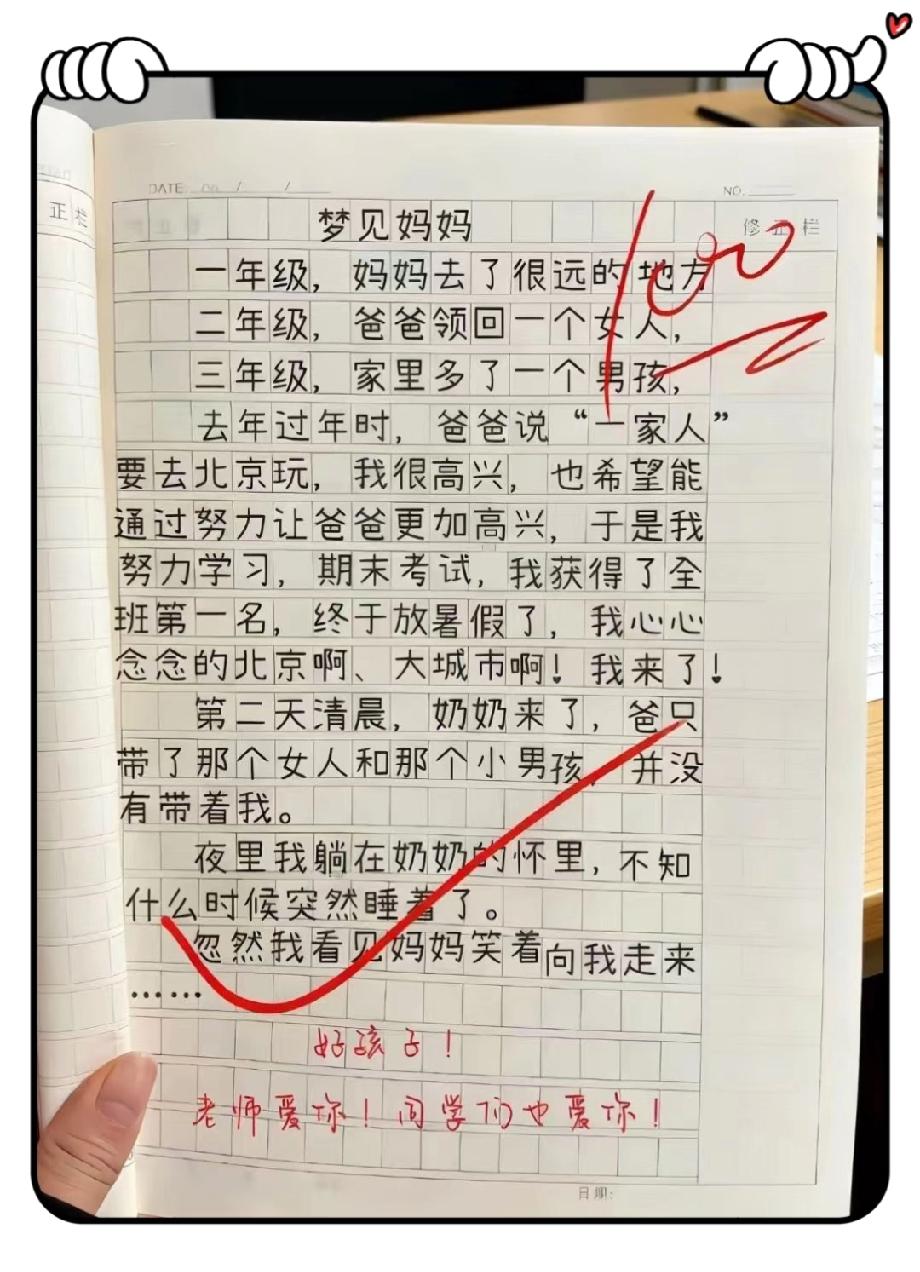 DATE: / /
NO.
正栏
梦见妈妈
修正栏
一年级，妈妈去了很远的地方
二年级，爸爸领回一个女人，
三年级，家里多了一个男孩，
去年过年时，爸爸说“一家人”
要去北京玩，我很高兴，也希望能
通过努力让爸爸更加高兴，于是我
努力学习，期末考试，我获得了全
班第一名，终于放暑假了，我心心
念念的北京啊、大城市啊！我来了！
第二天清晨，奶奶来了，爸只
带了那个女人和那个小男孩，并没
有带着我。
夜里我躺在奶奶的怀里，不知
什么时候突然睡着了。
忽然我看见妈妈笑着向我走来
……
100
好孩子！
老师爱你！同学们也爱你！
日期：